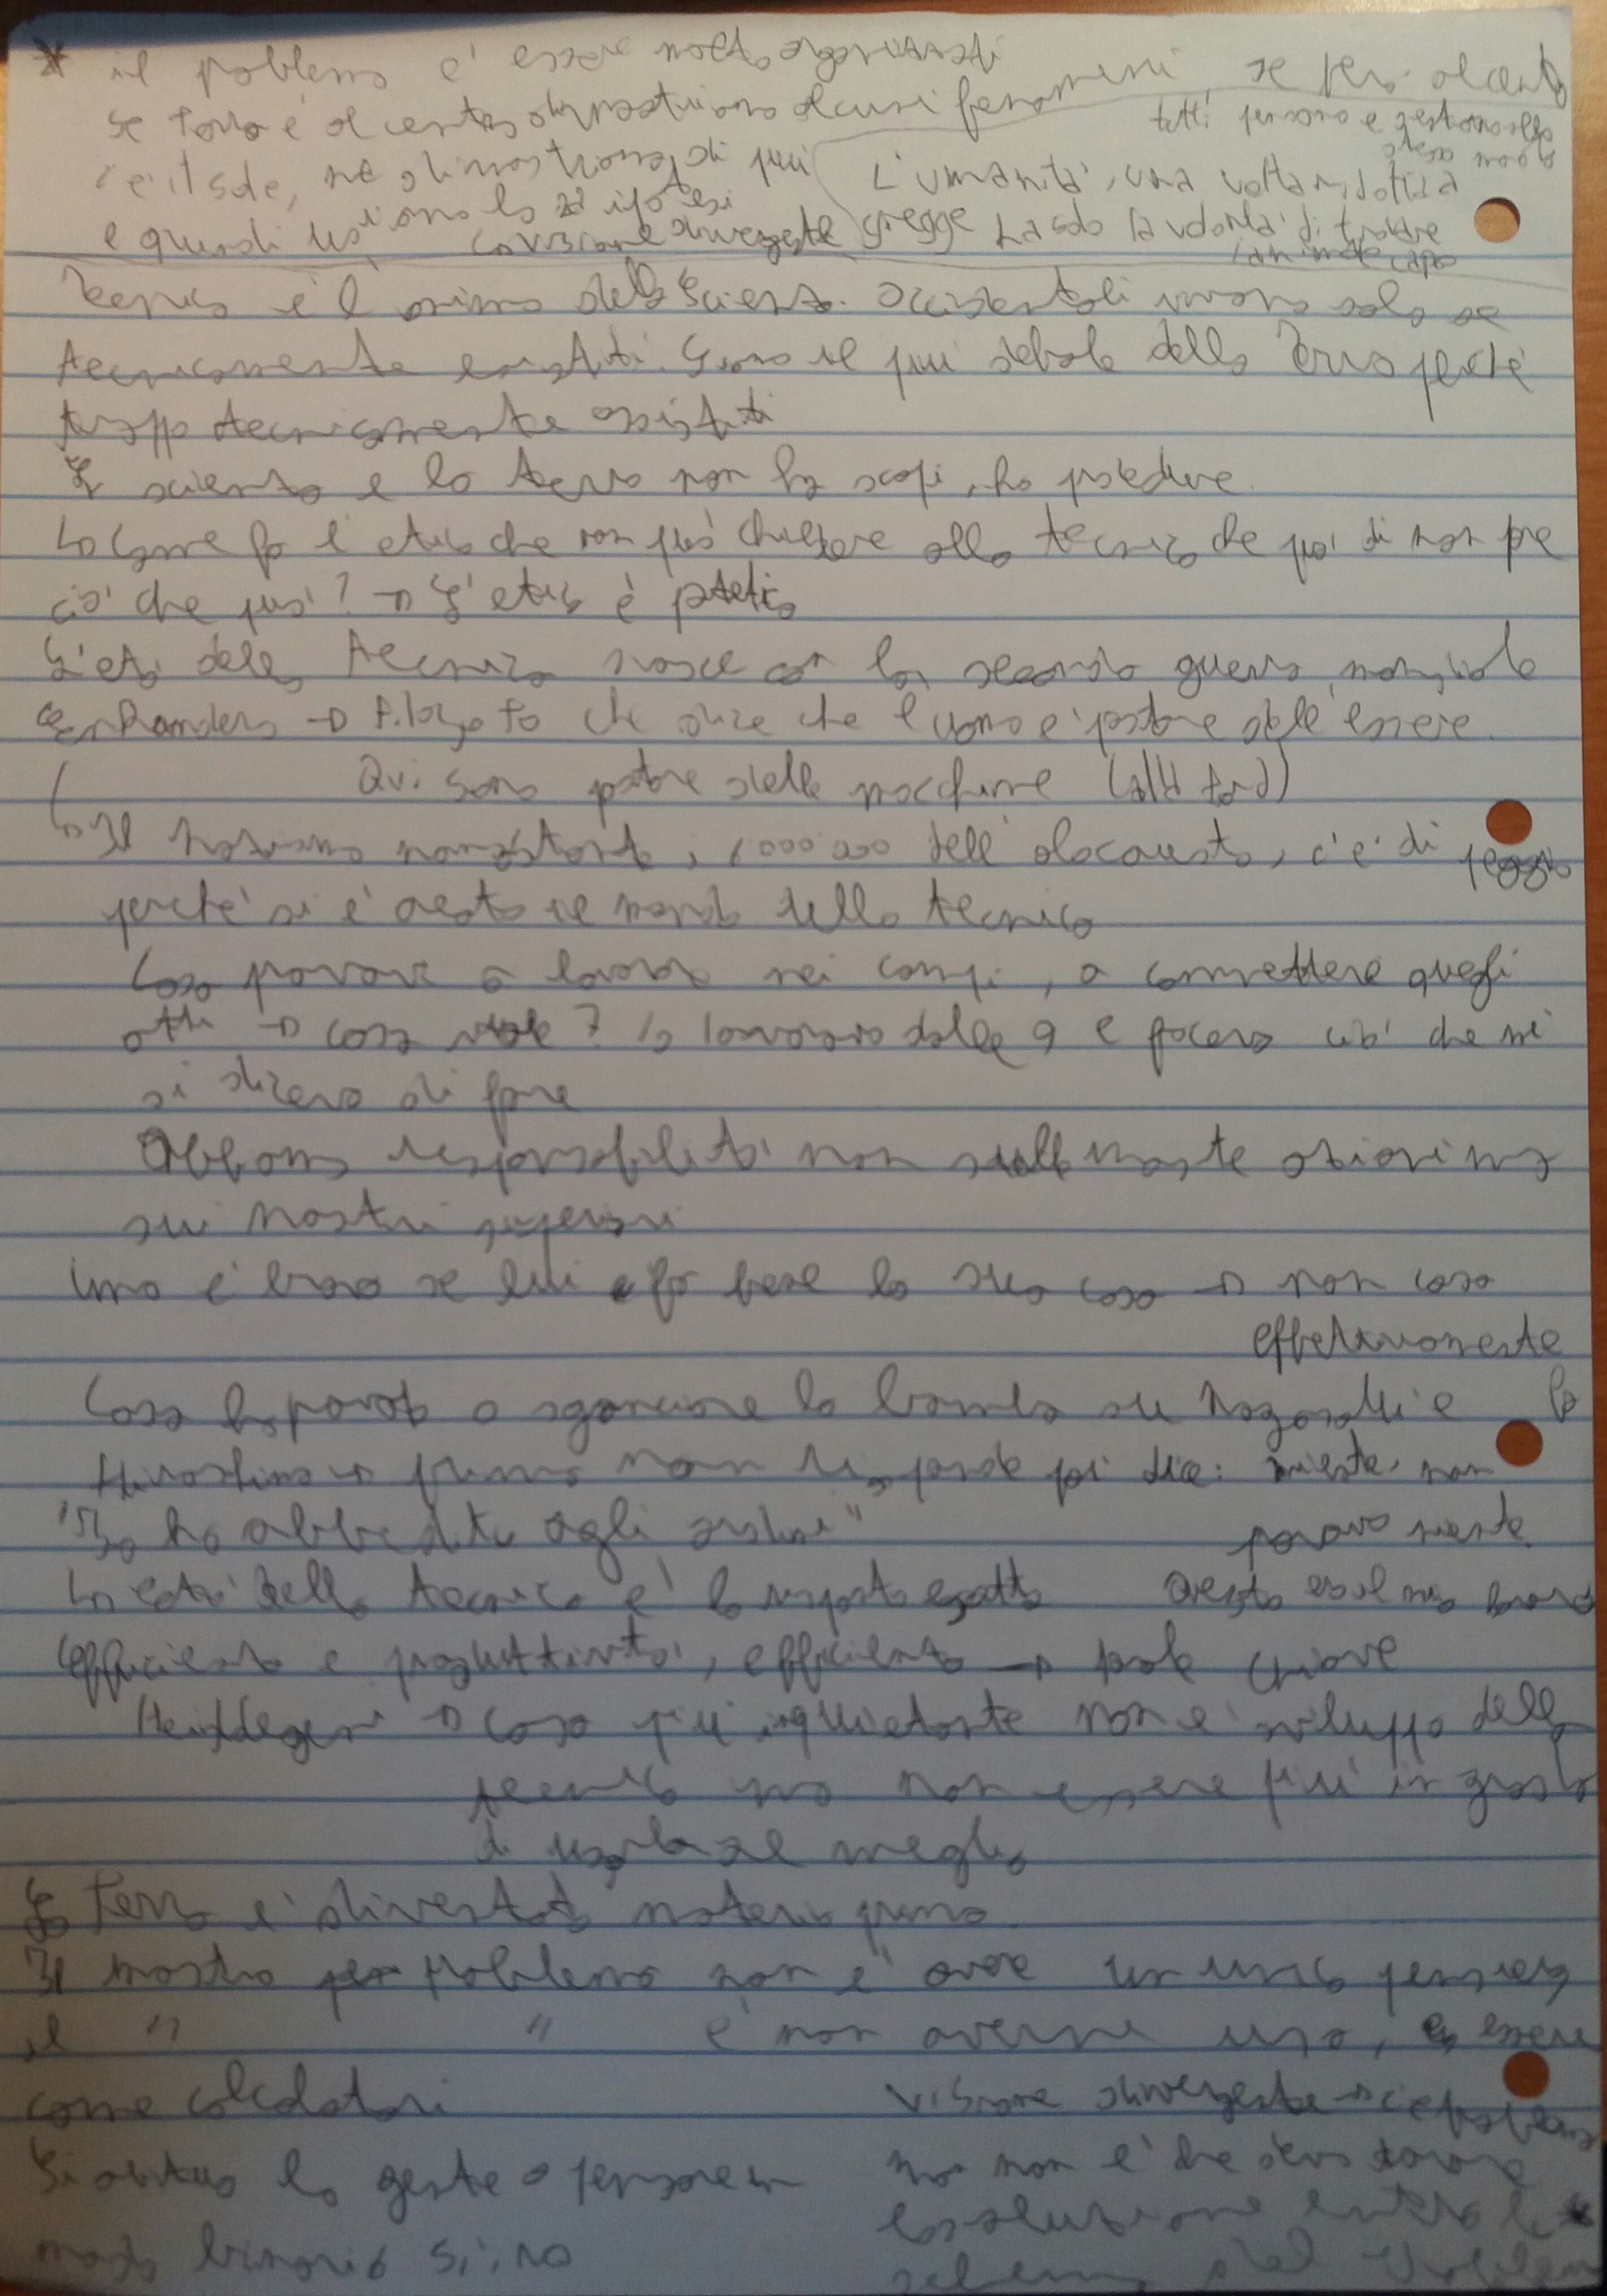 * il problema e' essere molto organizzati
se terra è al centro dimostriamo alcuni fenomeni, se però al centro
tutti pensano e gestono allo stesso modo
c'è il sole, ne dimostriamo di più
L'umanità, una volta ridotta a
e quindi la ipotesi
con visione divergente
gregge ha solo la volontà di trovare
l'animale capo
Tecnica è l'anima della scienza. Occidentali vivono solo se
tecnicamente assistiti. Sono il più debole della Terra perché
troppo tecnicamente assistiti
La scienza e la tecnica non ha scopi, ha procedure.
Come fa l'etica che non può chiedere alla tecnica che può di non fare
ciò che può? → L'etica è patetica
L'età della tecnica nasce con la seconda guerra mondiale
Anders → filosofo che dice che l'uomo e' pastore dell'essere.
Qui sono pastore delle macchine (all'
↳ Il nazismo nonostante i dell'olocausto, c'e' di peggio
perché si è creato il mondo della tecnica
Cosa provavi a lavorare nei campi, a commettere quegli
atti → cosa vuole? Io lavoravo dalle 9 e facevo ciò che mi
si diceva di fare
Abbiamo responsabilità non sulle nostre azioni ma
sui nostri superiori
Uno è bravo se lui fa bene la sua cosa → non cosa
effettivamente fa
Cosa ha provato a sganciare la bomba su Nagasaki e
Hiroshima → prima non risponde poi dice: niente, non
"Io ho obbedito agli ordini"
provavo niente
La età della tecnica è la risposta esatta
Questo era il mio lavoro
Efficienza e produttività, efficienza → parole chiave
Heiddeger → cosa più inquietante non e' sviluppo della
tecnica ma non essere più in grado
di usarla al meglio
La Terra e' diventata materia prima
Il nostro problema non e' avere un unico pensiero
il " " e' non averne uno, essere
come calcolatori
visione divergente → c'e' problema
Si abitua la gente a pensare in
ma non è che devo trovare
modo binario si, no
la soluzione entro lo *
schema del problema